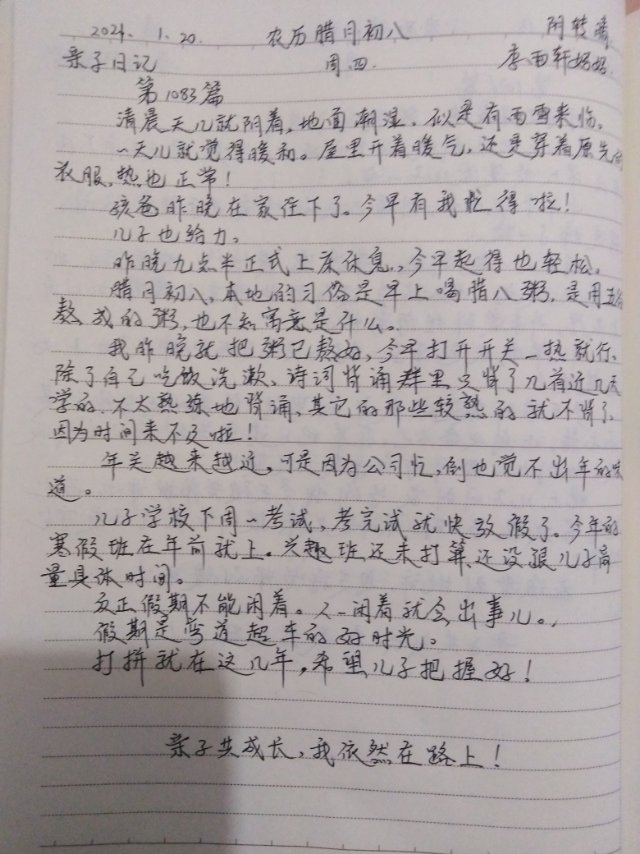 2021. 1. 20. 农历腊月初八 阴转
亲子日记 周四. 李雨轩妈妈
第1083篇
清晨天儿就阴着,地面潮湿,似是有雨雪来临。
一天儿就觉得暖和。屋里开着暖气,还是穿着原先的
衣服,热也正常!
孩爸昨晚在家住下了。今早有我忙得啦!
儿子也给力。
昨晚九点半正式上床休息,今早起得也轻松。
腊月初八,本地的习俗是早上喝腊八粥,是用五谷
熬成的粥,也不知寓意是什么。
我昨晚就把粥已熬好,今早打开开关一热就行。
除了自己吃饭洗漱,诗词背诵群里又背了几首近几天
学的,不太熟练地背诵,其它的那些较熟的就不背了,
因为时间来不及啦!
年关越来越近,可是因为公司忙,倒也觉不出年的味
道。
儿子学校下周一考试,考完试就快放假了。今年的
寒假班在年前就上。兴趣班还未打算,还没跟儿子商
量具体时间。
反正假期不能闲着。人一闲着就会出事儿。
假期是弯道超车的好时光。
打拼就在这几年,希望儿子把握好!
亲子共成长,我依然在路上!